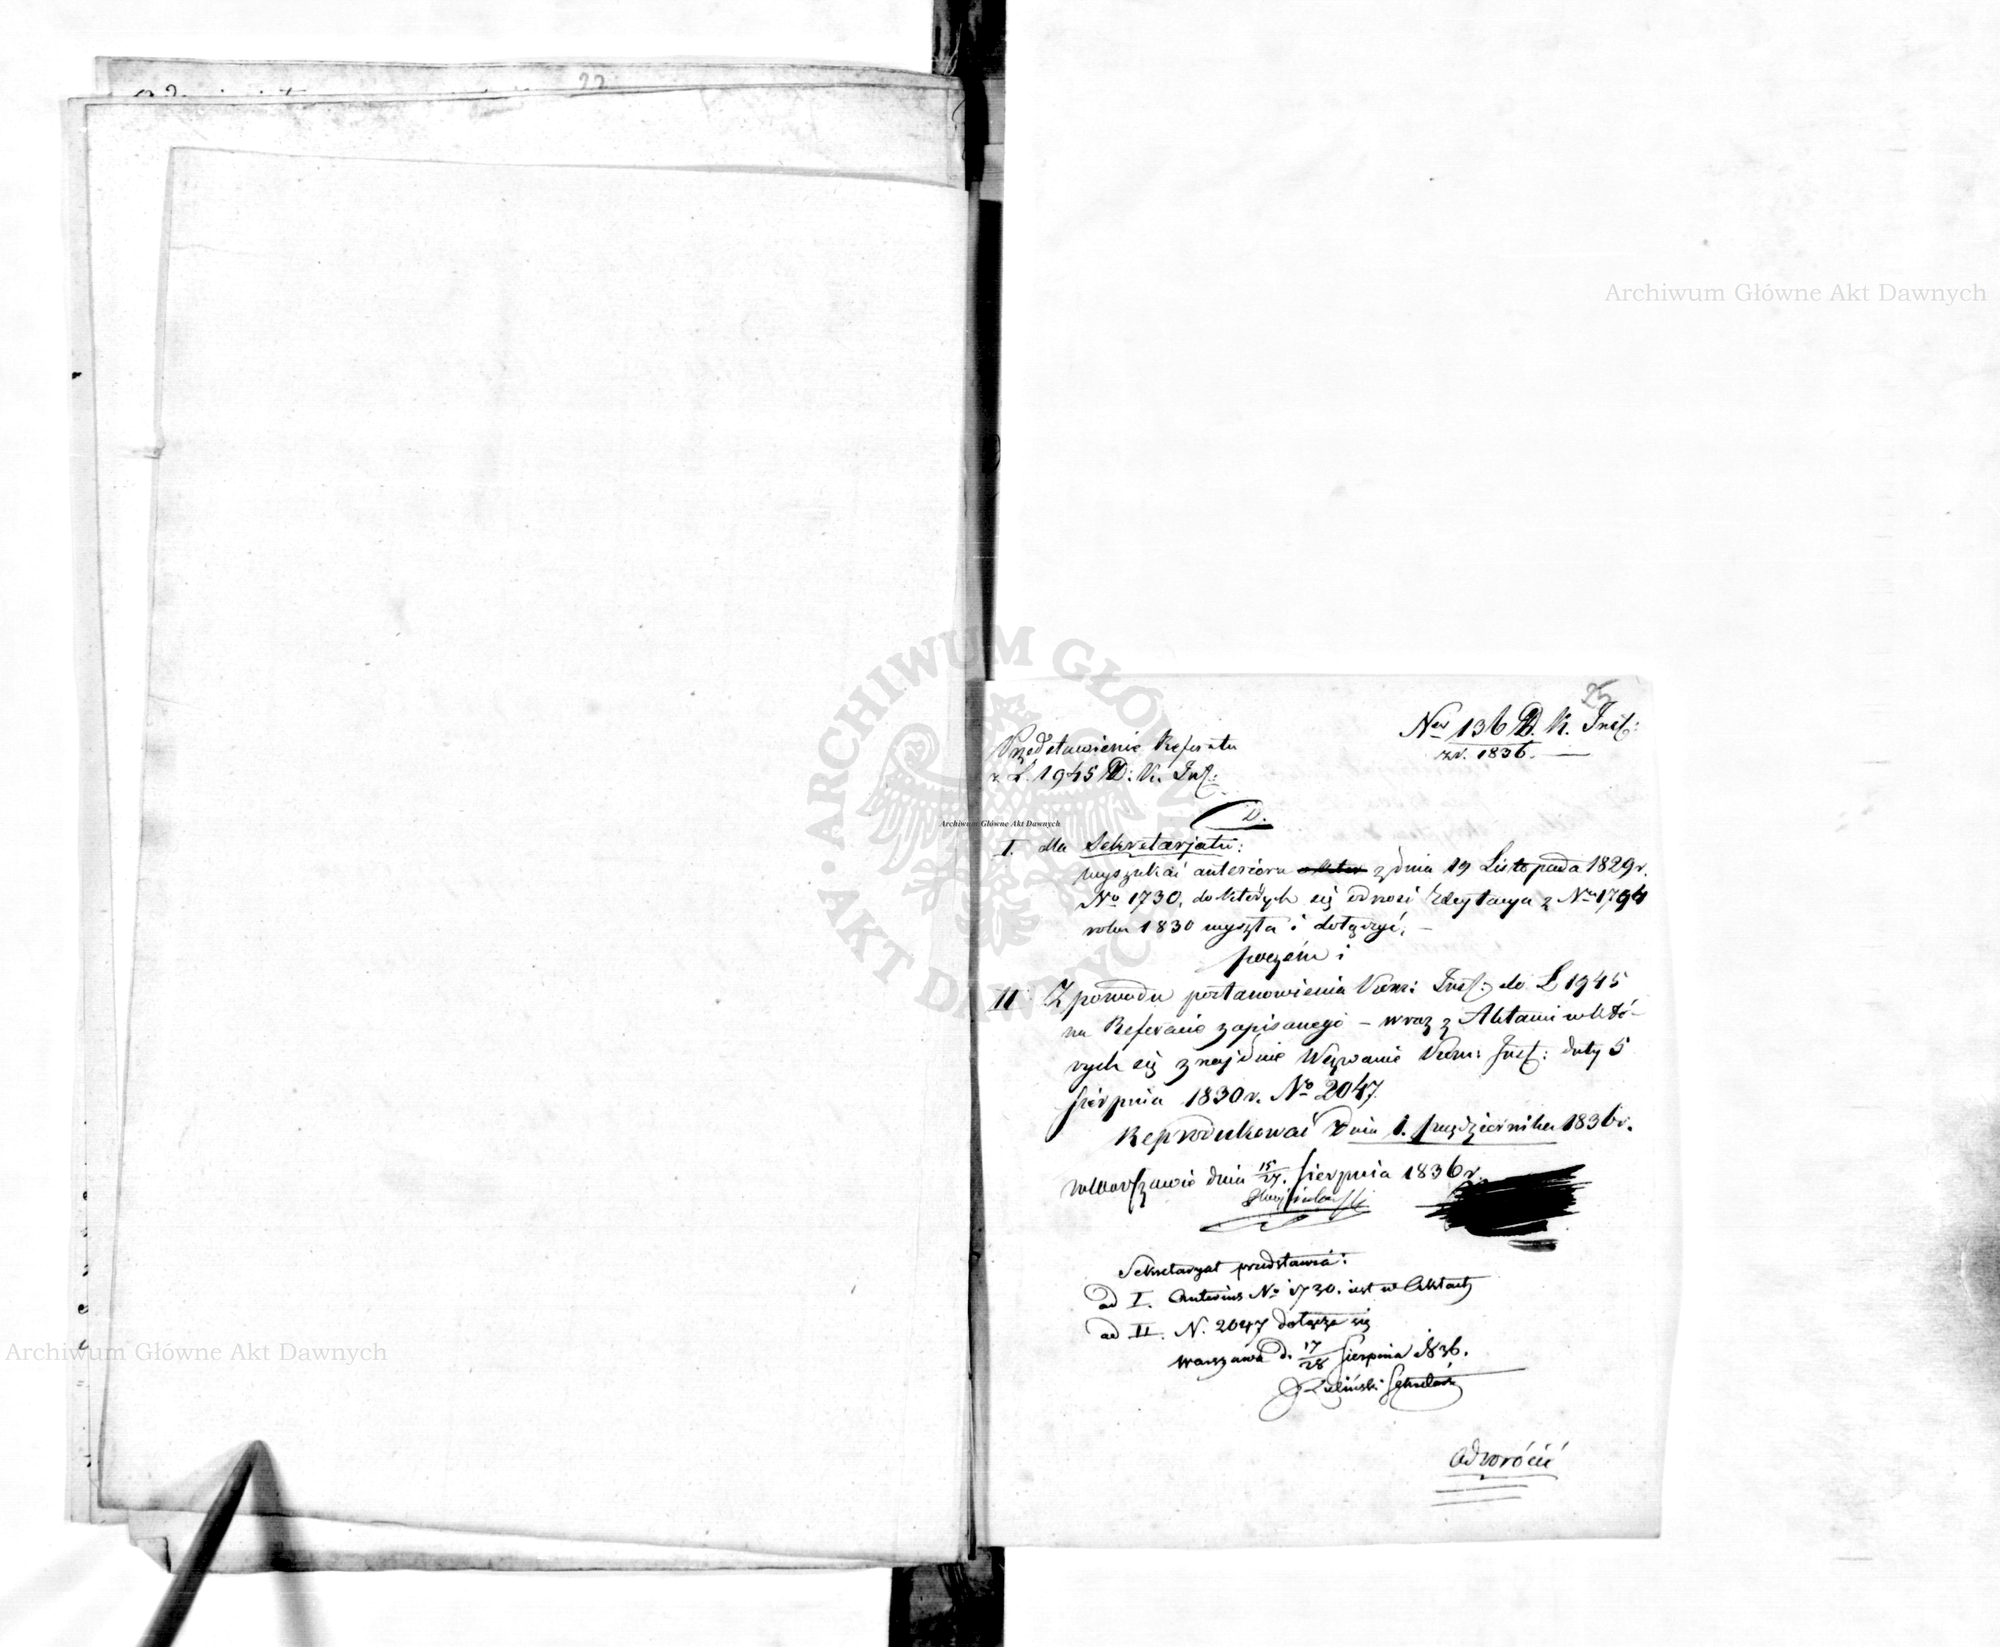 22
Archiwum Główne Akt Dawnych
25
Nro 136 D. K. Inst:
z r. 1836.
Przedstawienie Referatu
z L. 1945 D: K. Inst:
D.
I. dla Sekretarjatu:
wyszukać anteriora z dnia 19 Listopada 1829 r.
No 1730, do których się odnosi z Nru 1794
roku 1830 wyszła i dołączyć, —
poczém i
II Z powodu postanowienia Kom: Inst: do L 1945
na Referacie zapisanego – wraz z Aktami w któ-
rych się znajdzie Wezwanie Kom: Inst: daty 5
Sierpnia 1830 r. No 2047.
Reprodukować Dnia 1. Października 1836 r.
w Warszawie dnia 15/27. Sierpnia 1836 r.
Sekretaryat przedstawia:
ad I. Anterius No 1730. jest w Aktach
ad II. N. 2047 dołącza się
Warszawa d. 17/28 Sierpnia 1836.
Sekretarz
odwrócić
ARCHIWUM GŁÓWNE AKT DAWNYCH
Archiwum Główne Akt Dawnych
Archiwum Główne Akt Dawnych